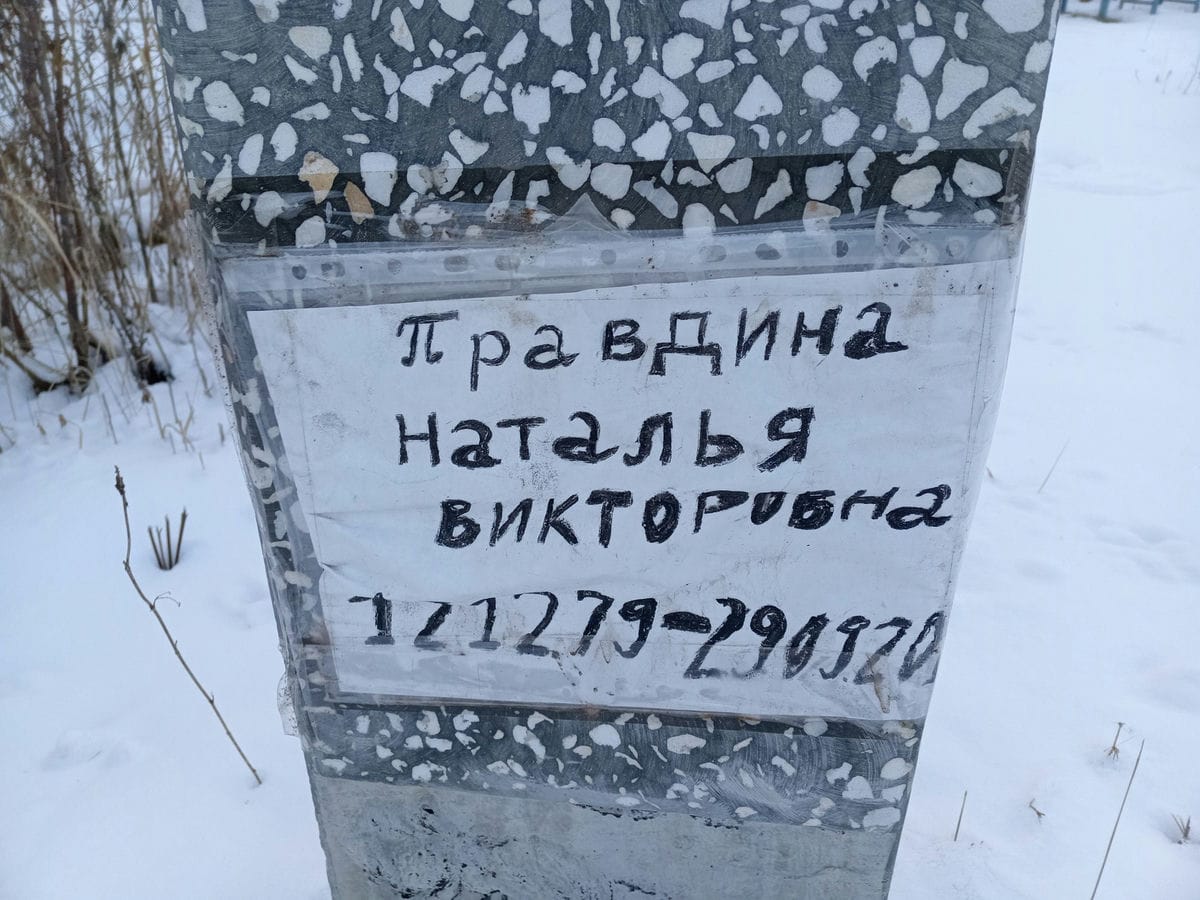 Правдина
Наталья
Викторовна
121279-290920